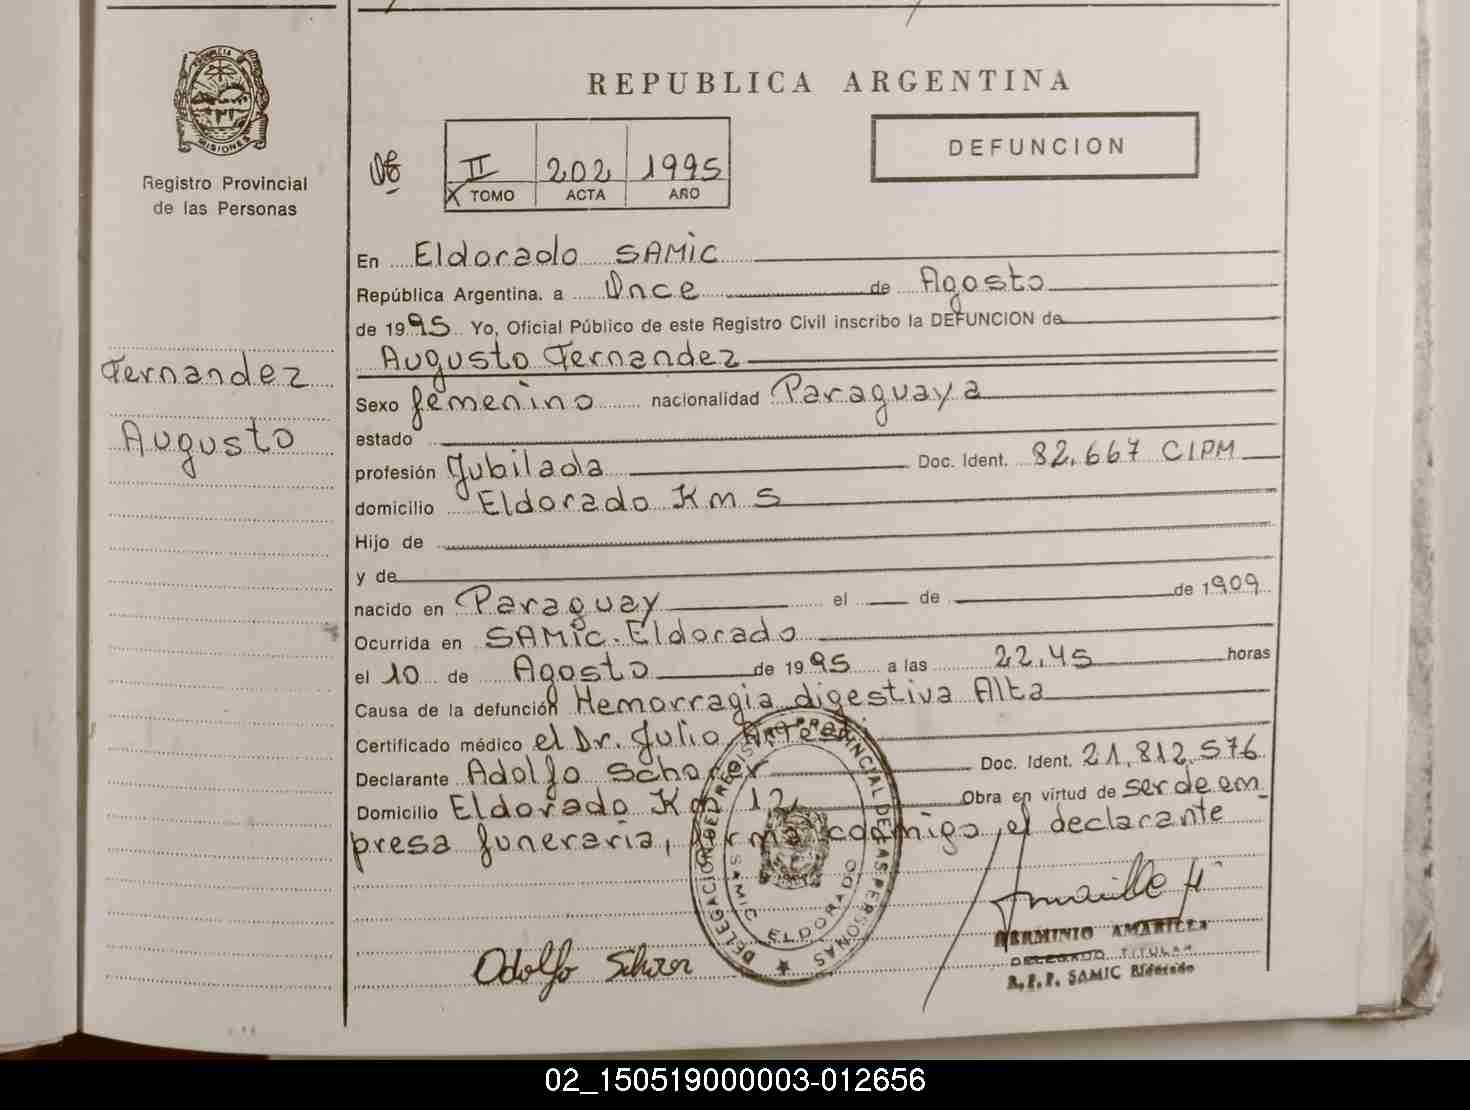 PROVINCIA DE
MISIONES
Registro Provincial
de las Personas
Fernandez
Augusto
REPUBLICA ARGENTINA
DEFUNCION
II 202 1995
X TOMO ACTA AÑO
En Eldorado SAMIC
República Argentina. a Once de Agosto
de 1995 Yo, Oficial Público de este Registro Civil inscribo la DEFUNCION de
Augusto Fernandez
Sexo femenino nacionalidad Paraguaya
estado
profesión Jubilada Doc. Ident. 82.667 CIPM
domicilio Eldorado Km 5
Hijo de
y de
nacido en Paraguay el de de 1909
Ocurrida en SAMIC. Eldorado
el 10 de Agosto de 1995 a las 22,45 horas
Causa de la defunción Hemorragia digestiva Alta
Certificado médico el Dr. Julio
Declarante Adolfo Doc. Ident. 21.812.576
Domicilio Eldorado Km 12 Obra en virtud de ser de em_
presa funeraria, firma conmigo, el declarante
DELEGACION DEL REGISTRO PROVINCIAL DE LAS PERSONAS
SAMIC ELDORADO
Adolfo
HERMINIO AMARILLA
DELEGADO TITULAR
R.P.P. SAMIC Eldorado
02_150519000003-012656